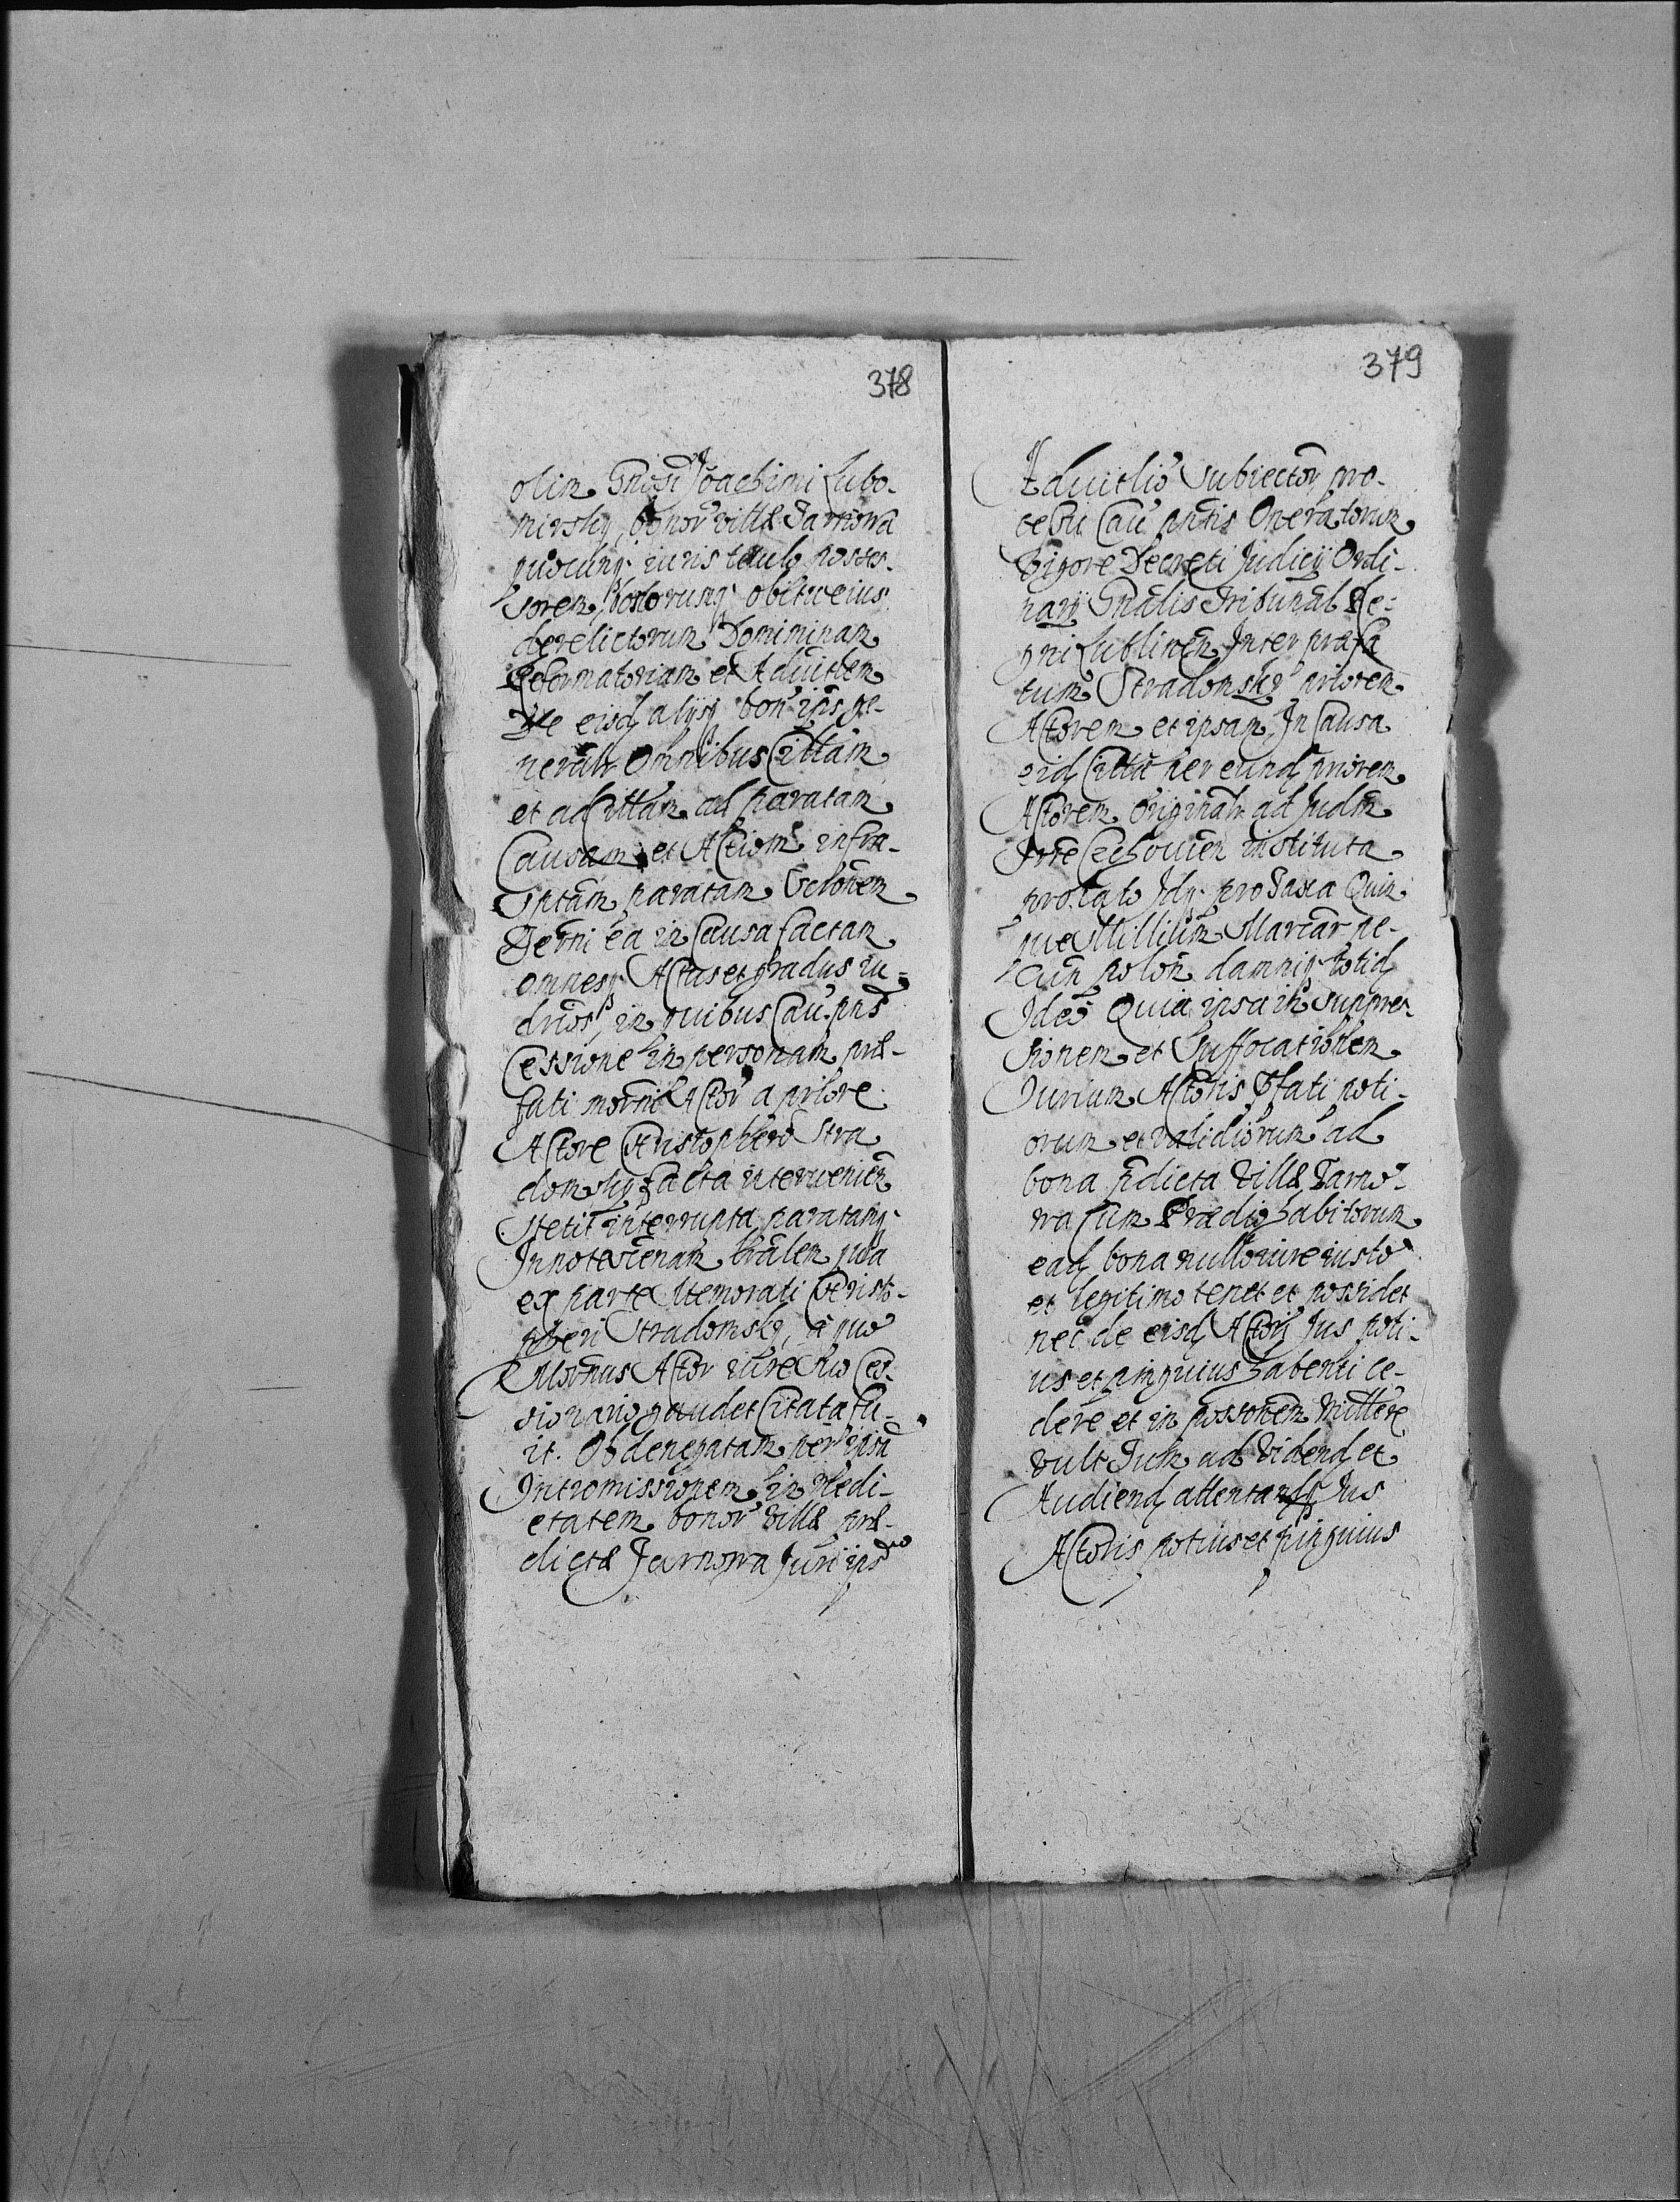 378
olim Gnosi Joachimi Lubo-
mirsky, bonor villæ Jarnowa
quocunq iuris titulo posses-
sorem, bonorumq obitu eius
derelictorum Domininam
Reformatoriam et Aduitlem
De eisd alysq bon ipis ge-
neralr Omnibus Cittam
et ad Cittam ad paratam
Causam et Actiom infra-
sptam paratam
Termi ea in Causa factam
omnesq Actus et gradus iu-
drios, in quibus Cau pns
Cessione in personam præ-
fati morni Actor a priore
Actore Christophero Stra
domsky facta interuenien
Stetit interrupta, paratamq
Innotescenam lralem qua
ex parte Memorati Christo-
pheri Stradomsky, a quo
Mornus Actor iure suo Ces-
sionario gaudet Citata fu-
it. Ob denegatam per ipsa
Intromissionem in Medi-
etatem bonor villæ præ-
dictæ Jarnowa Juri ipso
379
Aduitlio Subiector pro-
cessu Cau pntis Oneratorum
Vigore Decreti Judicy Ordi-
nary Gnalis Tribunal Re-
gni Lublinen Inter præfa
tum Stradomsky priorem
Actorem et ipsam, In Causa
eid Citta per eund priorem
Actorem Originalr ad Judm
Trre Cechouien instituta
prolato Idq pro Taxa Quin
que Millium Marcar pe-
cun polon damnisq totid
Ideo Quia ipsa in suppres-
sionem et Suffocationem
Jurium Actoris Pfati poti-
orum et validiorum ad
bona pdicta Villæ Jarno-
wa Cum Prædio habitorum
ead bona nullo iure iusto
et legitimo tenet et possidet
nec de eisd Actori Jus poti-
us et pinguius habenti ce-
dere et in possonem Mittere
vult Tum ad Videnд et
Audiend attentandq Jus
Actoris potius et pinguius